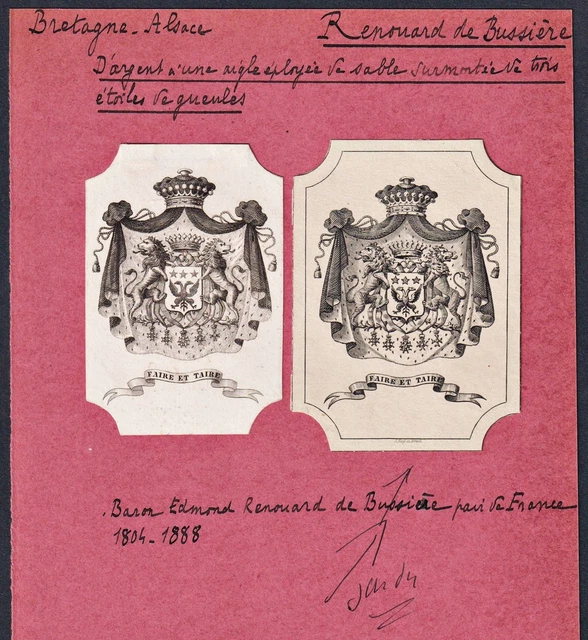 Bretagne - Alsace
Renouard de Bussière
D'argent à une aigle éployée de sable surmontée de trois
étoiles de gueules
FAIRE ET TAIRE
FAIRE ET TAIRE
Baron Edmond Renouard de Bussière pair de France
1804 - 1888